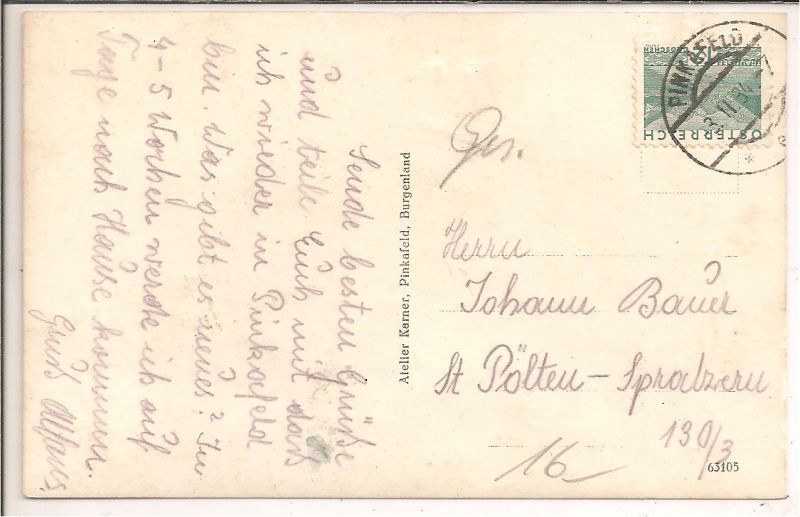 Sende besten Grüße
und teile Euch mit daß
ich wieder in Pinkafeld
bin. Was gibt es neues? In
4-5 Wochen werde ich auf
Tage nach Hause kommen.
Gruß
Atelier Karner, Pinkafeld, Burgenland
PINKAFELD
ÖSTERREICH
Herrn
Johann Bauer
St Pölten - Spratzern
130/3
16
63105